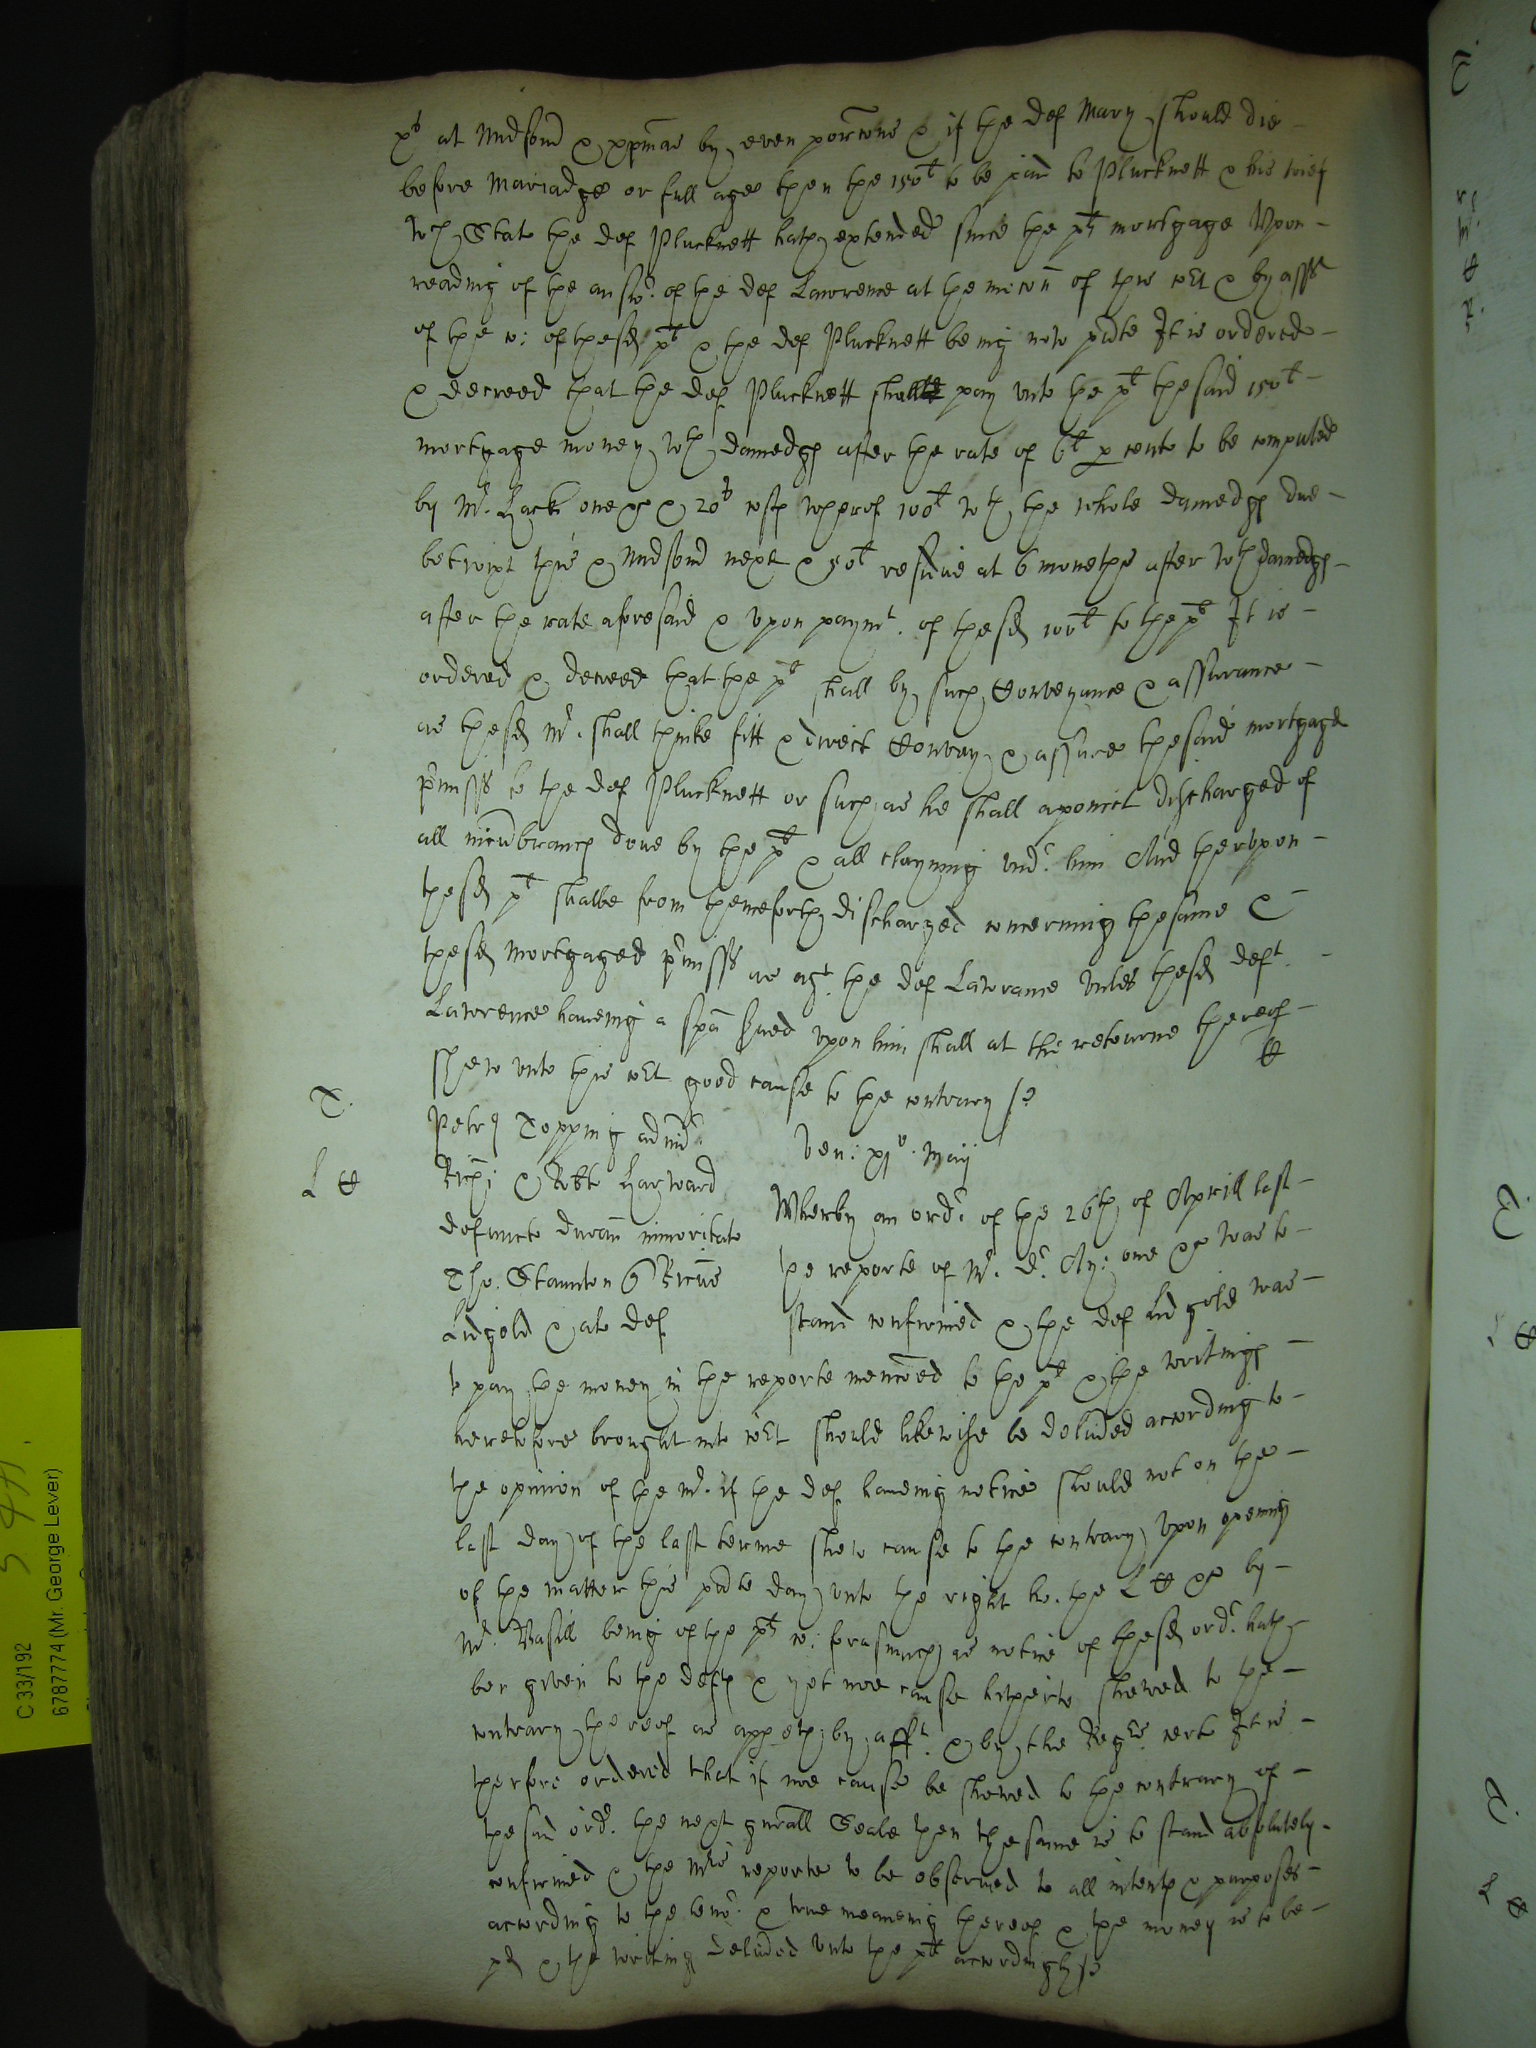 at Midsomr & xpmas by even porcons & if the def Mary should die
before Mariadge or full age then the 150l to be paid to Plucknett & his wief
wch State the def Plucknett hath extended since the plts mortgage Upon
reading of the answr. of the def Lawrence at the mocon of this cort & by asst
of the c: of the sd plt & the def Plucknett being now pnte It is ordered
& decreed that the def Plucknett shall pay unto the plt the said 150l
mortgage money wth damedgs after the rate of 6l p cento to be computed
by Mr. Hack one &c & 20s costs wherof 100l wth the whole damedgs due
betwixt this & Midsomr next & 50l residue at 6 moneths after wth damedgs
after the rate aforesaid & upon paymt. of the sd 100l to the plt It is
ordered & decreed that the plt shall by such Conveyance & assurance
as the sd Mr. shall thinke fitt & direct Convey & assure the said mortgage
prmisss to the def Plucknett or such as he shall apoinct discharged of
all incumbrancs done by the plt & all clayming undr. him And therupon
the sd plt shalbe from thenceforth discharged concerning the same &
the sd mortgaged prmisss as agt. the def Lawrance unles the sd deft.
Lawrence haveing a spa served upon him shall at the retourne thereof
shew unto this cort good cause to the contrary
T.
L C
Petrus Topping admr
Rici & Robte Hayward
defuncte durant minoritate
Tho. Staunton
Lidgold & als def
Ven: xjo. Maij
Wherby an ordr. of the 26th of Aprill last
the reporte of Mr. Dr. Ay: one &c was to
stand confirmed & the def Lidgold was
to pay the money in the reporte menconed to the plt & the writings
heretofore brought into cort should likewise be delivered according to
the opinion of the Mr. if the def haveing notice should not on the
last day of the last terme shew cause to the contrary Upon opening
of the matter this pnte day unto the right ho. the L C &c by
Mr. Vasill being of the plts c: forasmuch as notice of the sd ordr. hath
ben given to the defts & yet noe cause hitherto shewed to the
contrary thereof as appeth by afft. & by the Regrs. certe It is
therfore ordered that if noe cause be shewed to the contrary of
the said ordr. the next gnrall Seale then the same is to stand absolutely
confirmed & the Mrs reporte to be observed to all intents & purposes
according to the tenor. & true meaneing thereof & the money is to be
pd & the writings delivered unto the plt accordingly
C 33/192
6787774 (Mr. George Lever)